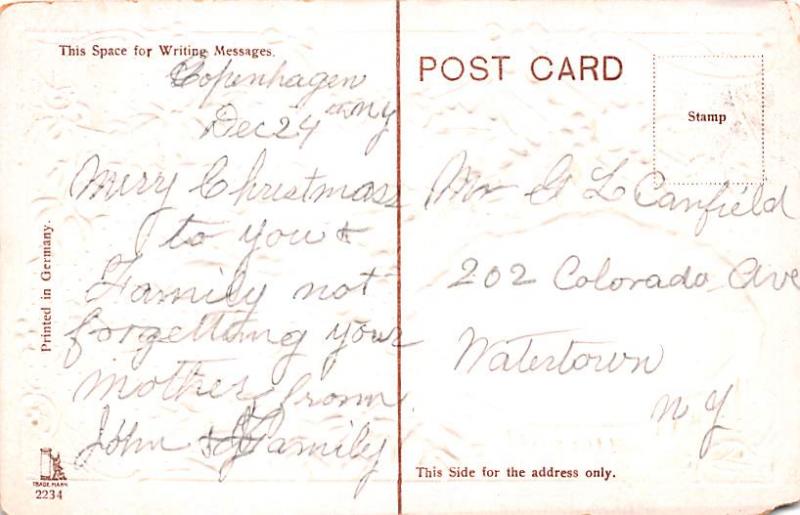 This Space for Writing Messages.
Copenhagen
Dec 24 NY
Merry Christmass
to you &
Family not
forgetting your
mother from
John & Family
Printed in Germany.
TRADE MARK
2234
POST CARD
Stamp
Mr G L Canfield
202 Colorado Ave
Watertown
N Y
This Side for the address only.